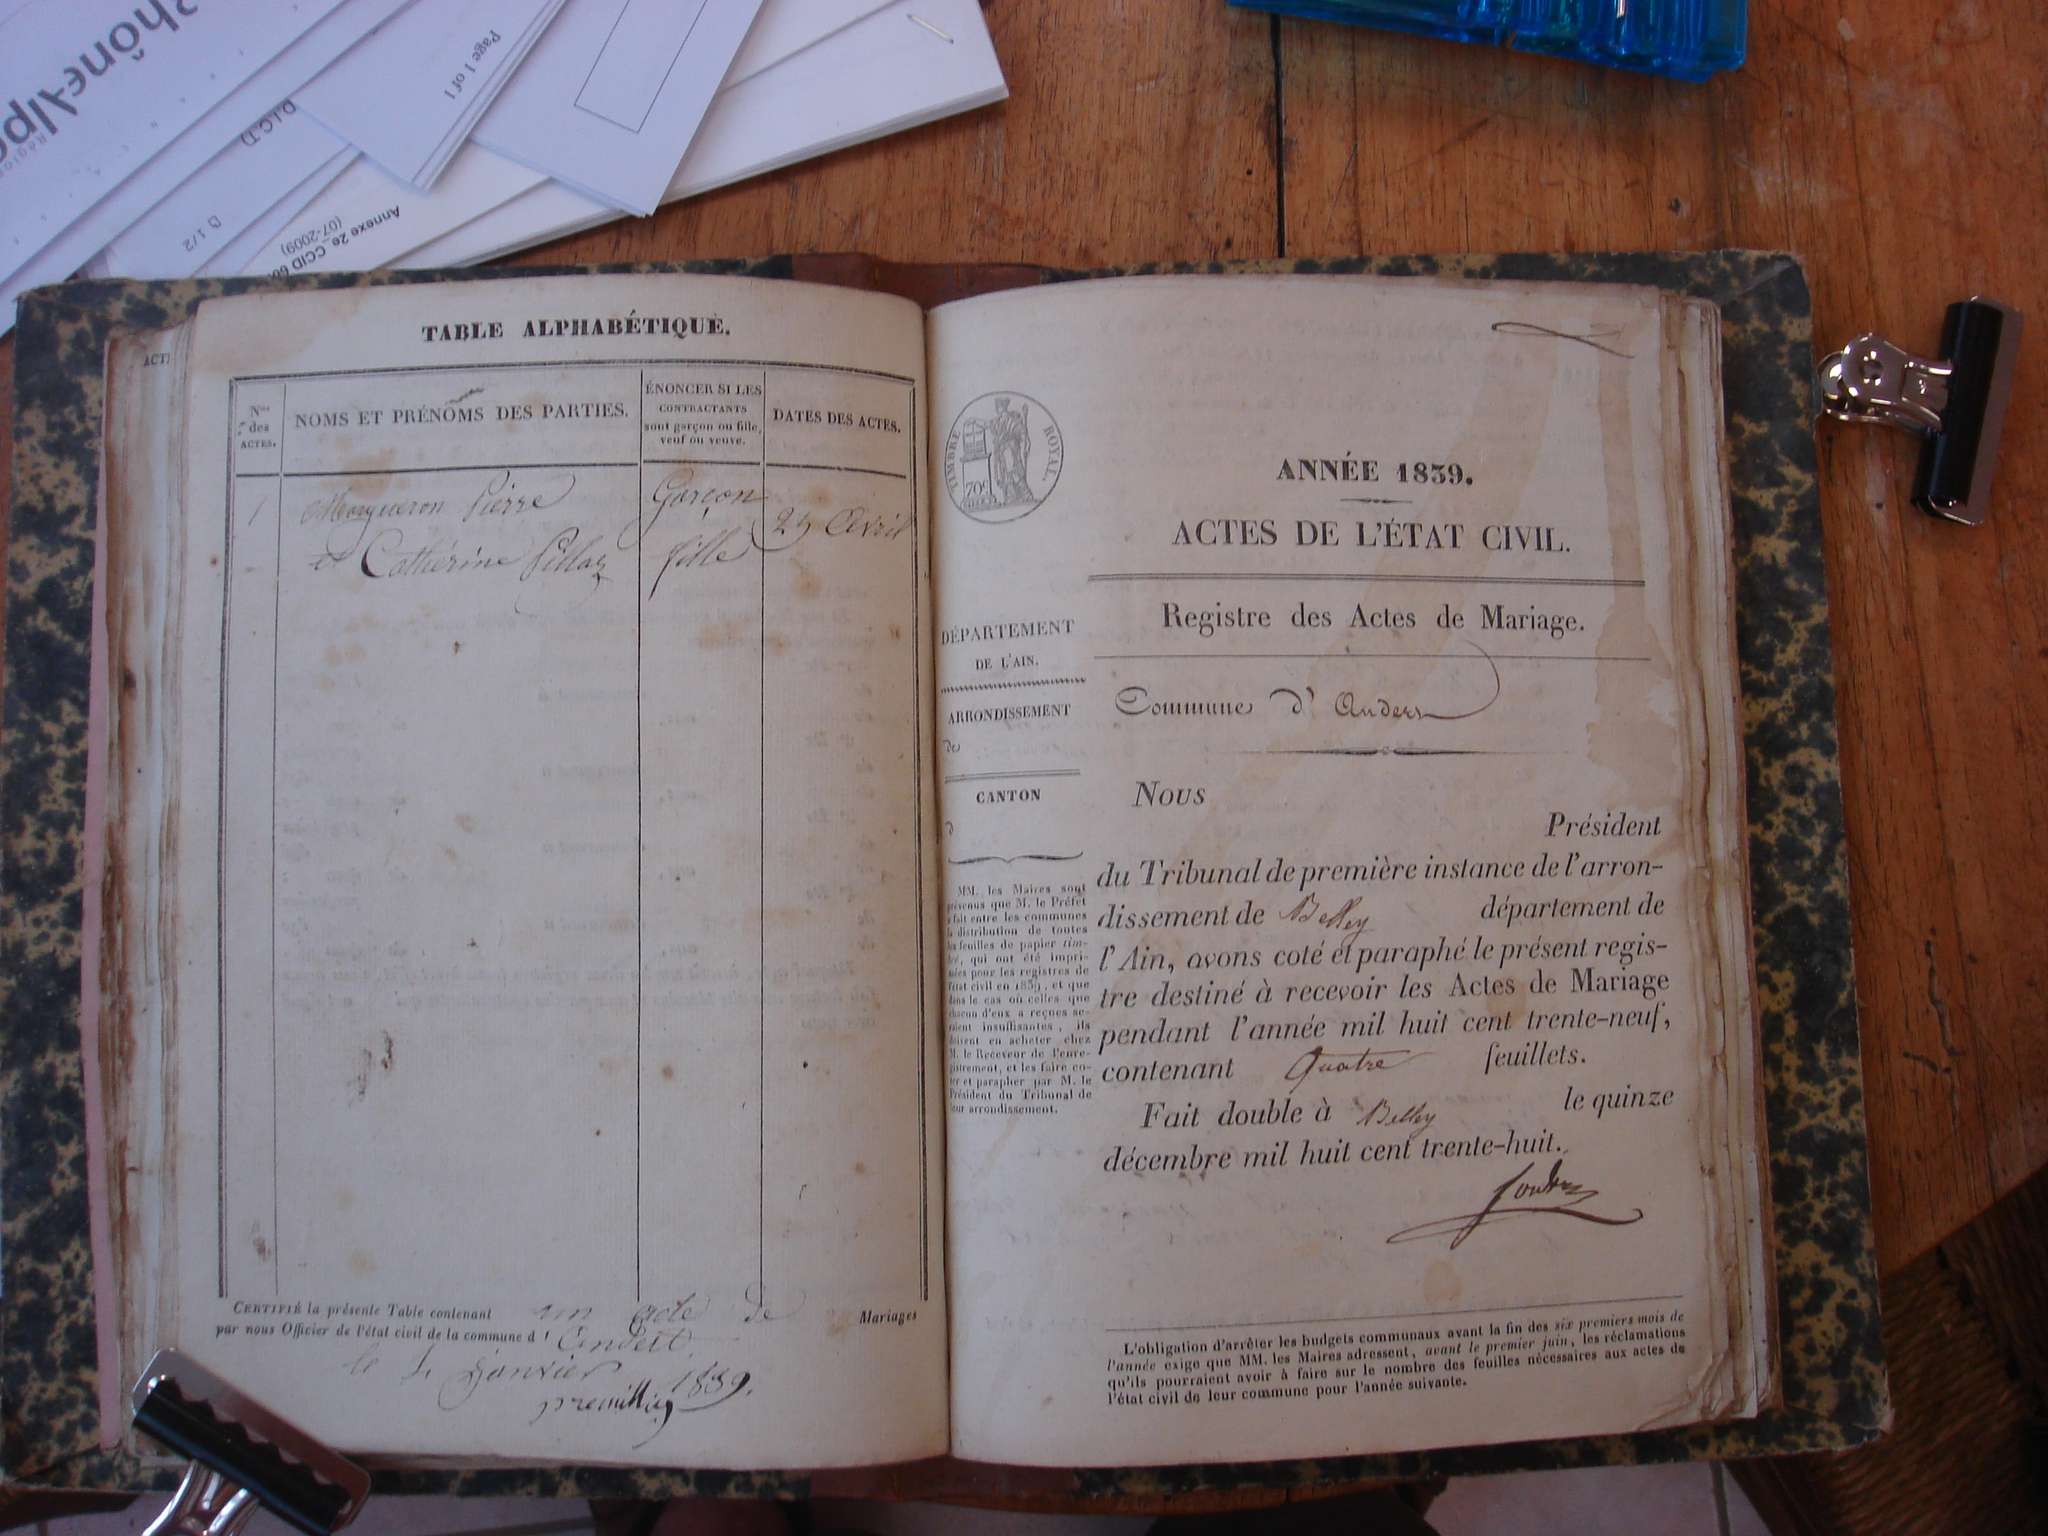 RhôneAlpe
Page 1 of 1
D.I.C.D
D 1/2
Annexe 2e_CCID
(07-2009)
ACT
TABLE ALPHABÉTIQUE.
Nos des ACTES.
NOMS ET PRÉNOMS DES PARTIES.
ÉNONCER SI LES
CONTRACTANTS
sont garçon ou fille,
veuf ou veuve.
DATES DES ACTES.
1 Pierre Garçon
et Catherine Pillaz fille
Avril
CERTIFIÉ la présente Table contenant un acte de Mariages
par nous Officier de l'état civil de la commune d'
le Janvier
1839.
TIMBRE ROYAL.
70c
DÉPARTEMENT
DE L'AIN.
ARRONDISSEMENT
de
CANTON
d
MM. les Maires sont
prévenus que M. le Préfet
a fait entre les communes
la distribution de toutes
les feuilles de papier tim-
bré, qui ont été impri-
mées pour les registres de
l'état civil en 1839, et que
dans le cas où celles que
chacun d'eux a reçues se-
raient insuffisantes, ils
doivent en acheter chez
M. le Receveur de l'enre-
gistrement, et les faire co-
ter et parapher par M. le
Président du Tribunal de
leur arrondissement.
ANNÉE 1839.
ACTES DE L'ÉTAT CIVIL.
Registre des Actes de Mariage.
Commune d' Andert
Nous
Président
du Tribunal de première instance de l'arron-
dissement de Belley département de
l'Ain, avons coté et paraphé le présent regis-
tre destiné à recevoir les Actes de Mariage
pendant l'année mil huit cent trente-neuf,
contenant Quatre feuillets.
Fait double à Belley le quinze
décembre mil huit cent trente-huit.
L'obligation d'arrêter les budgets communaux avant la fin des six premiers mois de
l'année exige que MM. les Maires adressent, avant le premier juin, les réclamations
qu'ils pourraient avoir à faire sur le nombre des feuilles nécessaires aux actes de
l'état civil de leur commune pour l'année suivante.